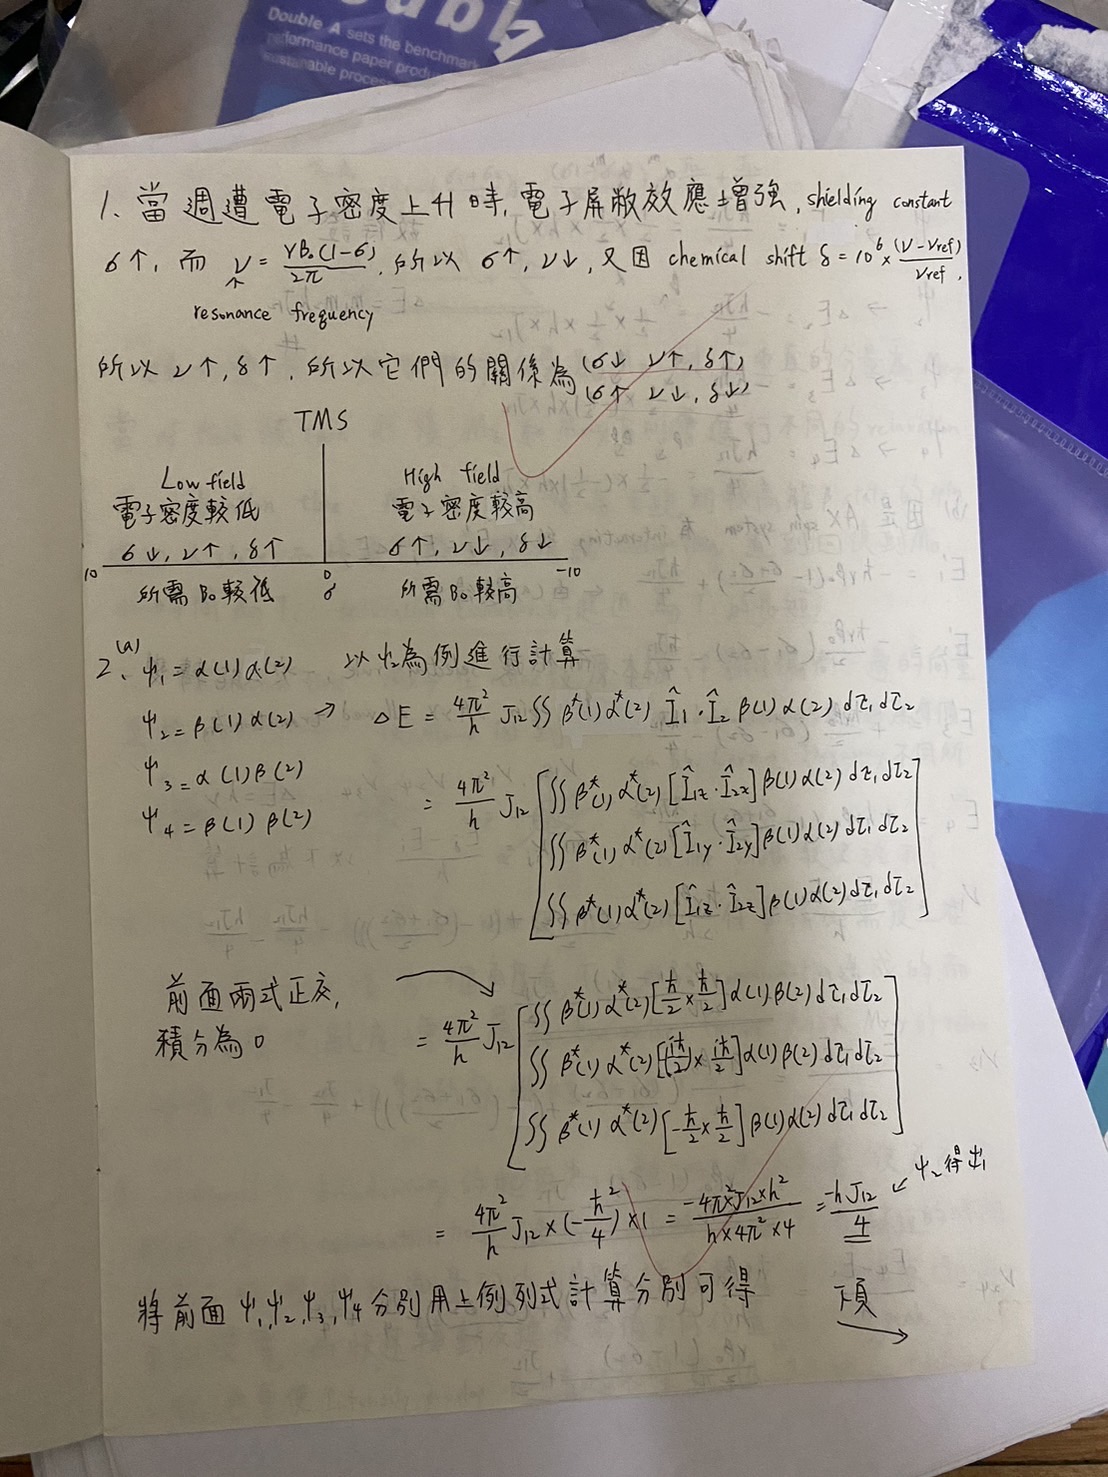 Double A
Double A sets the benchmark
performance paper produ
sustainable proces
1. 當週遭電子密度上升時,電子屏敝效應增強, shielding constant
σ↑, 而 ν = γB₀(1-σ)/2π, 所以 σ↑, ν↓, 又因 chemical shift δ = 10⁶ × (ν-νref)/νref,
↑
resonance frequency
所以 ν↑, δ↑, 所以它們的關係為 (σ↓ ν↑, δ↑)
(σ↑ ν↓, δ↓)
TMS
Low field High field
電子密度較低 電子密度較高
σ↓, ν↑, δ↑ σ↑, ν↓, δ↓
10 0 -10
所需 B₀ 較低 δ 所需 B₀ 較高
2. (a) ψ₁ = α(1)α(2) 以ψ₂為例進行計算
ψ₂ = β(1)α(2) → ΔE = 4π²/h J₁₂ ∬ β*(1)α*(2) Î₁·Î₂ β(1)α(2) dτ₁dτ₂
ψ₃ = α(1)β(2)
ψ₄ = β(1)β(2)
= 4π²/h J₁₂ [∬ β*(1)α*(2) [Î₁z·Î₂z] β(1)α(2) dτ₁dτ₂
∬ β*(1)α*(2) [Î₁y·Î₂y] β(1)α(2) dτ₁dτ₂
∬ β*(1)α*(2) [Î₁z·Î₂z] β(1)α(2) dτ₁dτ₂]
前面兩式正交,
積分為0
= 4π²/h J₁₂ [∬ β*(1)α*(2) [ħ/2 × ħ/2] α(1)β(2) dτ₁dτ₂
∬ β*(1)α*(2) [(iħ/2) × iħ/2] α(1)β(2) dτ₁dτ₂
∬ β*(1)α*(2) [-ħ/2 × ħ/2] β(1)α(2) dτ₁dτ₂]
= 4π²/h J₁₂ × (-ħ²/4) × 1 = -4π²×J₁₂×h²/h×4π²×4 = -hJ₁₂/4 ↙ ψ₂得出
將前面 ψ₁,ψ₂,ψ₃,ψ₄ 分別用上例列式計算分別可得 下頁